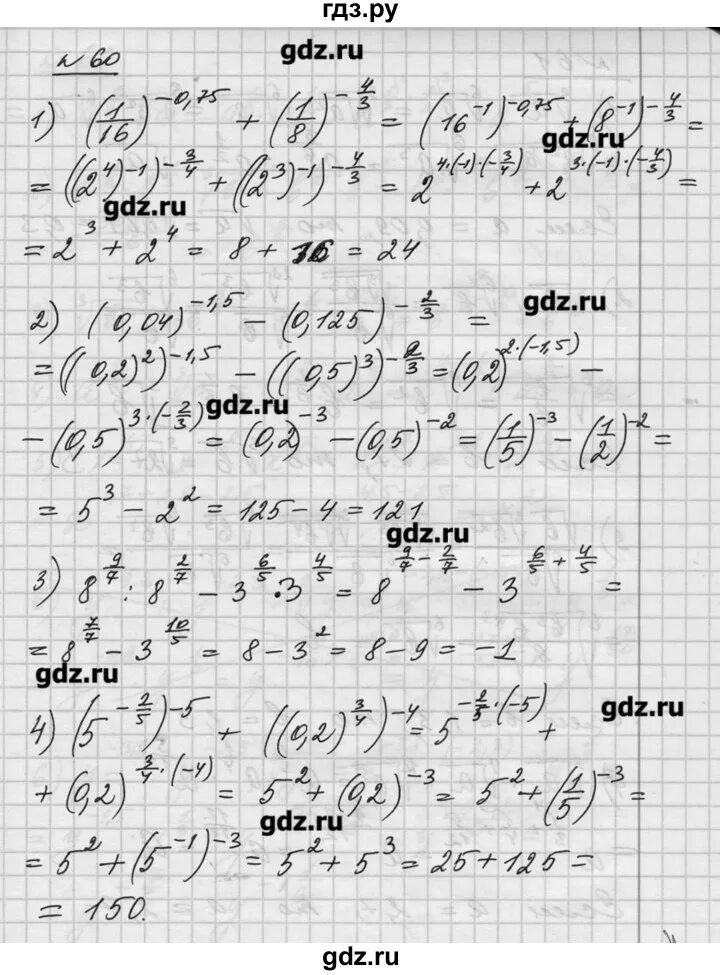 гдз.ру
№ 60
gdz.ru
1) (1/16)^(-0,75) + (1/8)^(-4/3) = (16^(-1))^(-0,75) + (8^(-1))^(-4/3) =
gdz.ru
= ((2^4)^(-1))^(-3/4) + ((2^3)^(-1))^(-4/3) = 2^(4·(-1)·(-3/4)) + 2^(3·(-1)·(-4/3)) =
gdz.ru
= 2^3 + 2^4 = 8 + 16 = 24
gdz.ru
2) (0,04)^(-1,5) - (0,125)^(-2/3) =
= ((0,2)^2)^(-1,5) - ((0,5)^3)^(-2/3) = (0,2)^(2·(-1,5)) -
gdz.ru
- (0,5)^(3·(-2/3)) = (0,2)^(-3) - (0,5)^(-2) = (1/5)^(-3) - (1/2)^(-2) =
= 5^3 - 2^2 = 125 - 4 = 121
gdz.ru
3) 8^(9/7) : 8^(2/7) - 3^(6/5) · 3^(4/5) = 8^(9/7 - 2/7) - 3^(6/5 + 4/5) =
= 8^(7/7) - 3^(10/5) = 8 - 3^2 = 8 - 9 = -1
gdz.ru
gdz.ru
4) (5^(-2/5))^(-5) + ((0,2)^(3/4))^(-4) = 5^(-2/5·(-5)) +
+ (0,2)^(3/4·(-4)) = 5^2 + (0,2)^(-3) = 5^2 + (1/5)^(-3) =
gdz.ru
= 5^2 + (5^(-1))^(-3) = 5^2 + 5^3 = 25 + 125 =
= 150.
gdz.ru